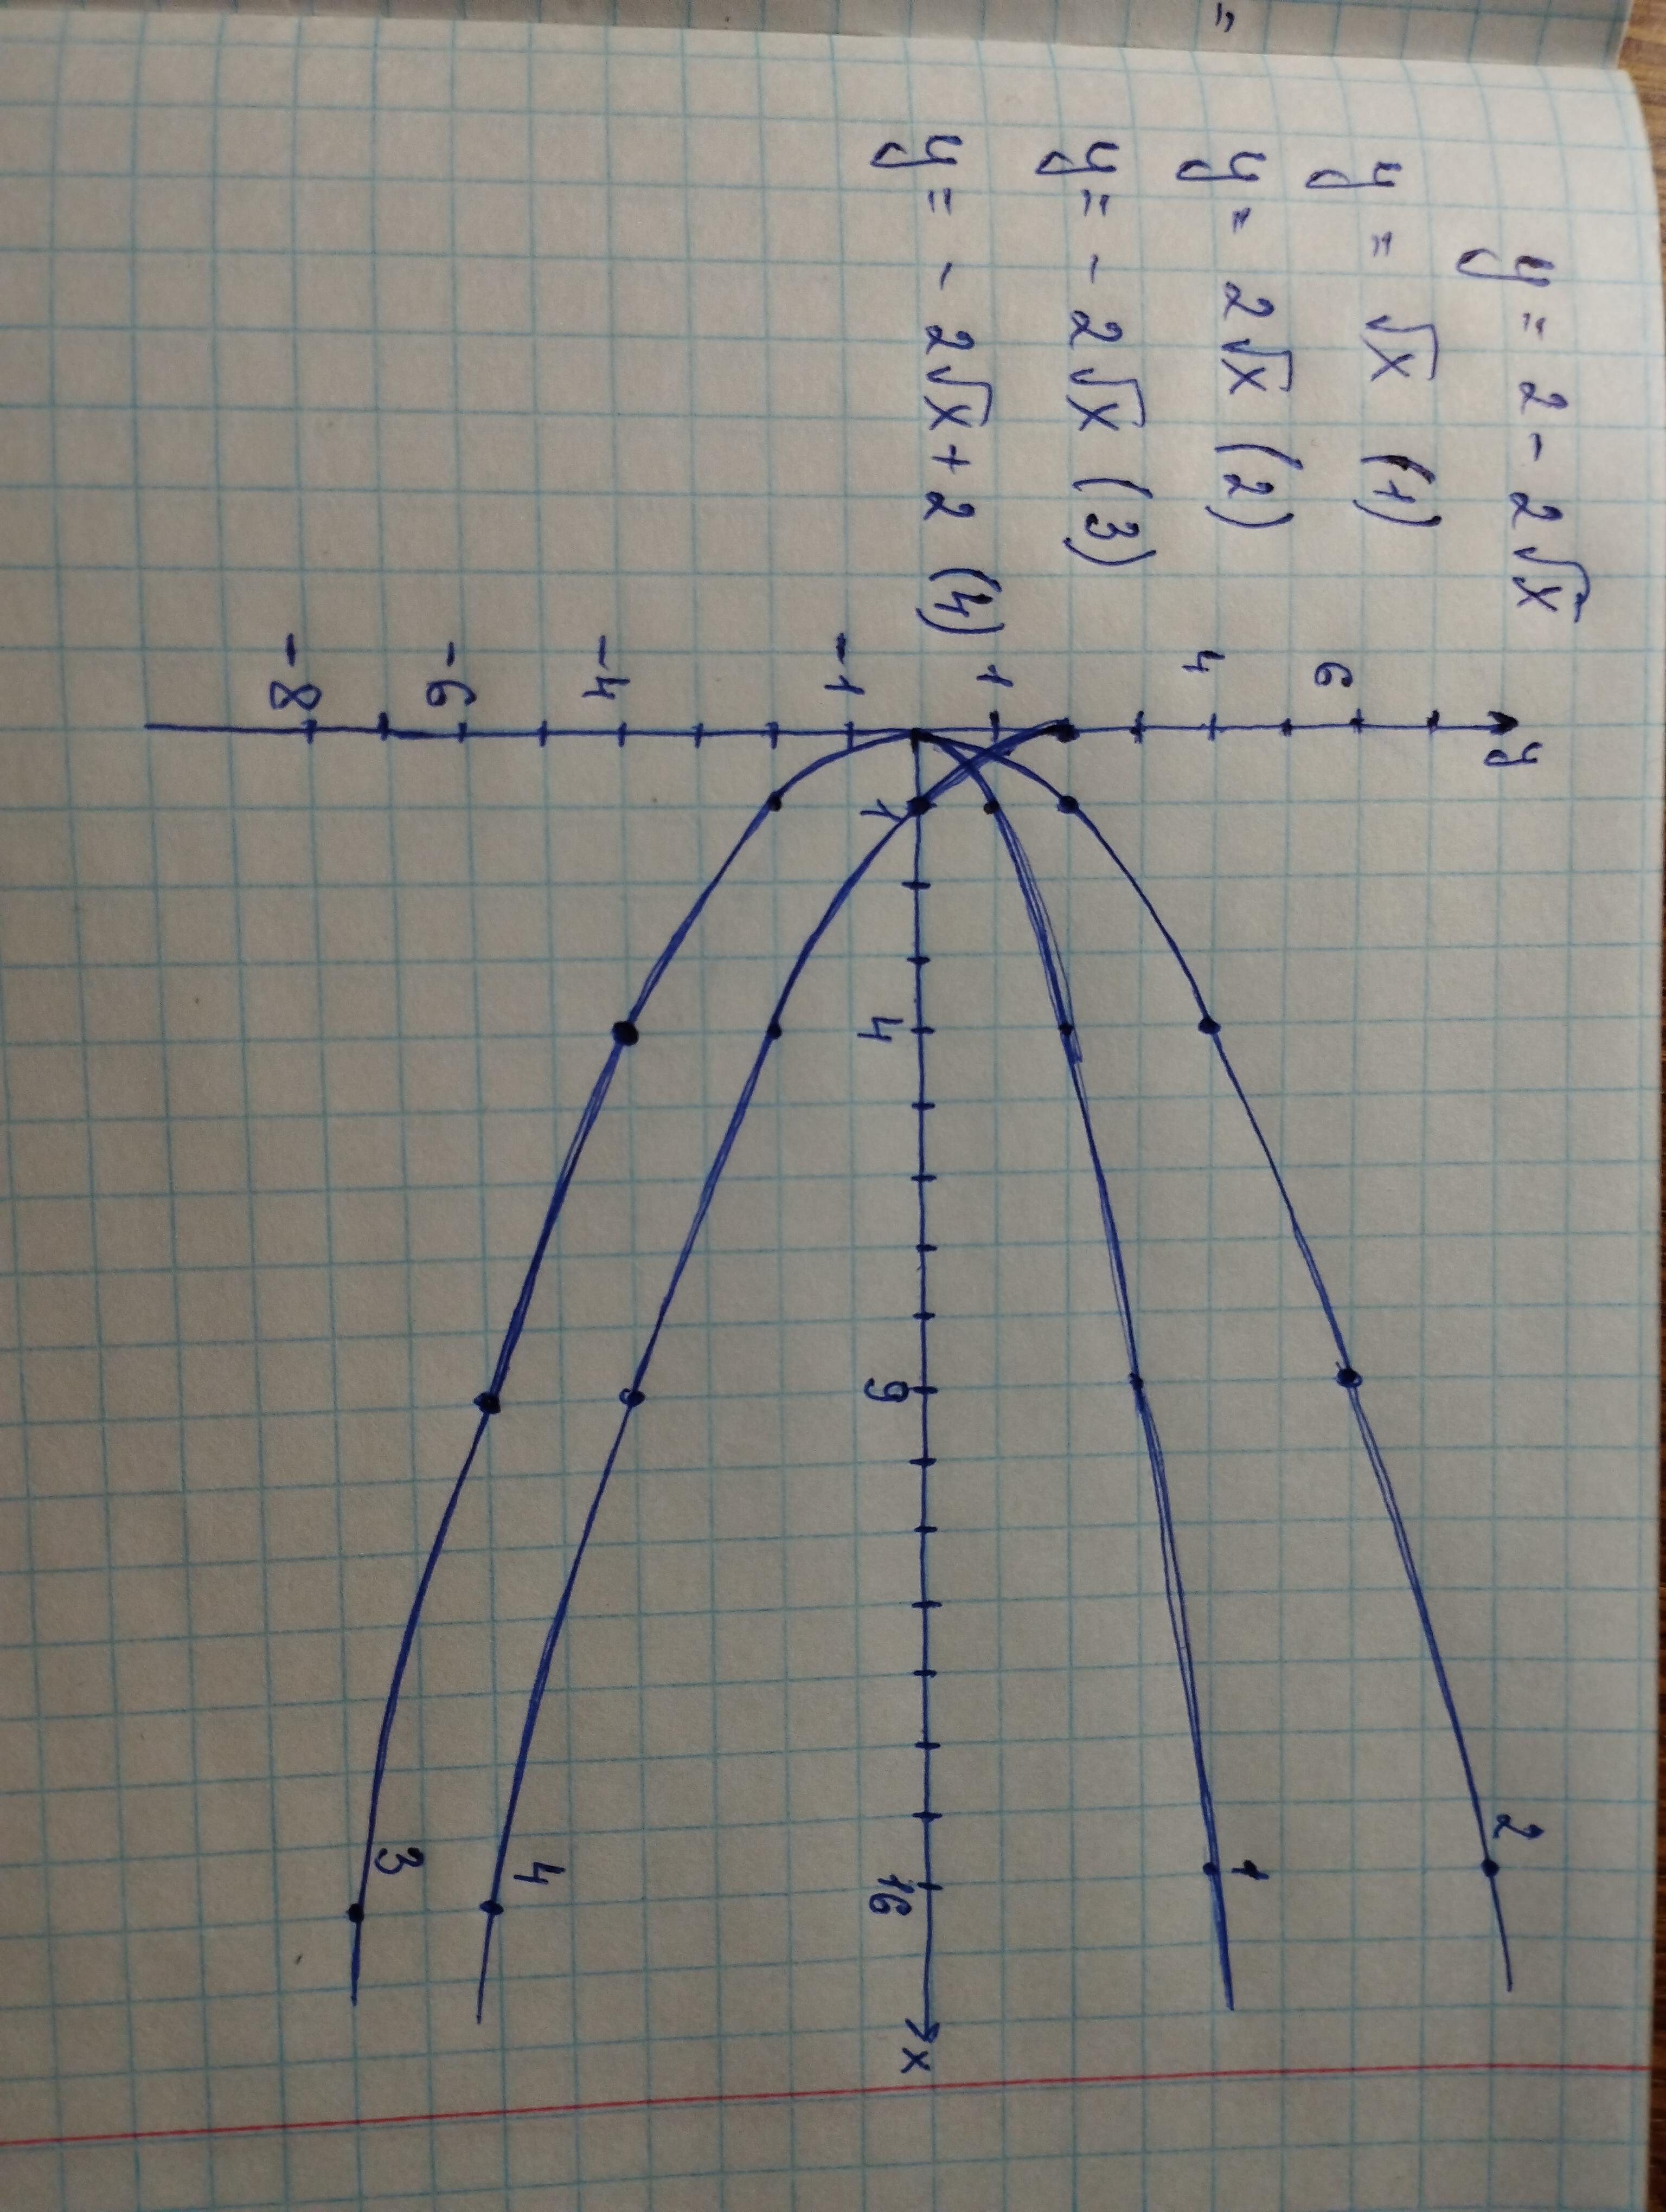 y = 2 - 2√x
y = √x (1)
y = 2√x (2)
y = - 2√x (3)
y = - 2√x + 2 (4)
y
6
4
1
-1
-4
-6
-8
1 4 9 16 x
2
1
4
3